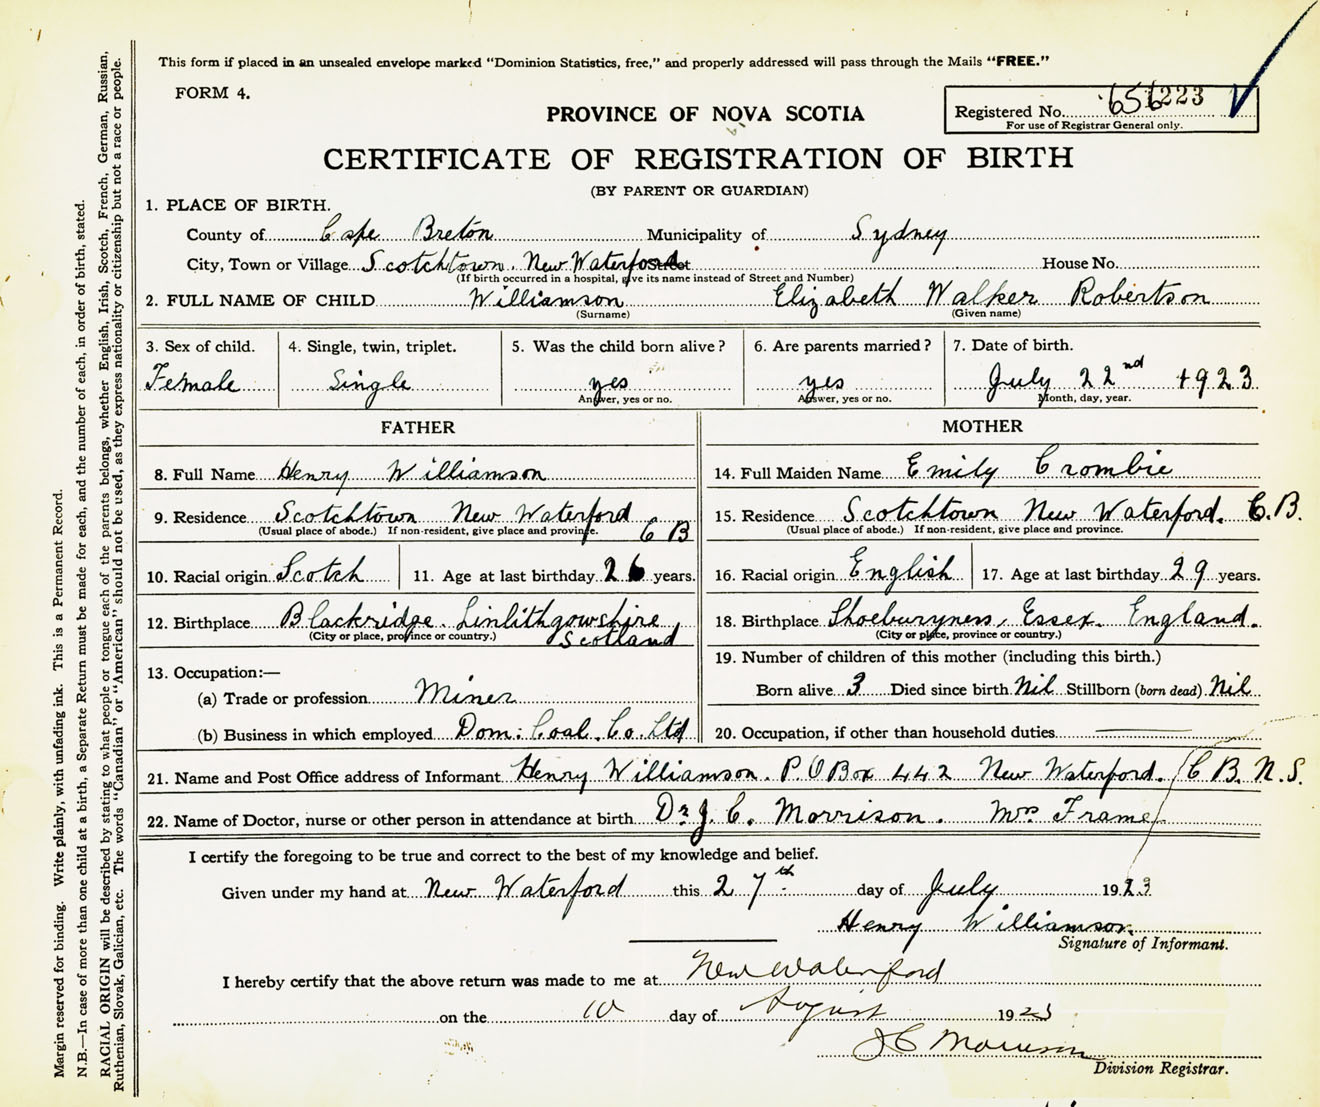 This form if placed in an unsealed envelope marked "Dominion Statistics, free," and properly addressed will pass through the Mails "FREE."
FORM 4.
PROVINCE OF NOVA SCOTIA
Registered No. 656223
For use of Registrar General only.
CERTIFICATE OF REGISTRATION OF BIRTH
(BY PARENT OR GUARDIAN)
1. PLACE OF BIRTH.
County of Cape Breton Municipality of Sydney
City, Town or Village Scotchtown. New Waterford Street House No.
(If birth occurred in a hospital, give its name instead of Street and Number)
2. FULL NAME OF CHILD Williamson Elizabeth Walker Robertson
(Surname) (Given name)
3. Sex of child. 4. Single, twin, triplet. 5. Was the child born alive? 6. Are parents married? 7. Date of birth.
Female Single yes yes July 22nd 1923
Answer, yes or no. Answer, yes or no. Month, day, year.
FATHER
8. Full Name Henry Williamson
9. Residence Scotchtown New Waterford
(Usual place of abode.) If non-resident, give place and province. C B
10. Racial origin Scotch 11. Age at last birthday 26 years.
12. Birthplace Blackridge. Linlithgowshire
(City or place, province or country.) Scotland
13. Occupation:—
(a) Trade or profession Miner
(b) Business in which employed Dom: Coal. Co. Ltd
MOTHER
14. Full Maiden Name Emily Crombie
15. Residence Scotchtown New Waterford. C.B.
(Usual place of abode.) If non-resident, give place and province.
16. Racial origin English 17. Age at last birthday 29 years.
18. Birthplace Shoeburyness, Essex. England.
(City or place, province or country.)
19. Number of children of this mother (including this birth.)
Born alive 3 Died since birth Nil Stillborn (born dead) Nil
20. Occupation, if other than household duties
21. Name and Post Office address of Informant Henry Williamson. P O Box 442 New Waterford. C B. N.S.
22. Name of Doctor, nurse or other person in attendance at birth Dr J. C. Morrison. Mrs Frame
I certify the foregoing to be true and correct to the best of my knowledge and belief.
Given under my hand at New Waterford this 27th day of July 1923
Henry Williamson.
Signature of Informant.
I hereby certify that the above return was made to me at New Waterford
on the 10 day of August 1923
J C Morrison
Division Registrar.
Margin reserved for binding. Write plainly, with unfading ink. This is a Permanent Record.
N.B.—In case of more than one child at a birth, a Separate Return must be made for each, and the number of each, in order of birth, stated.
RACIAL ORIGIN will be described by stating to what people or tongue each of the parents belongs, whether English, Irish, Scotch, French, German, Russian,
Ruthenian, Slovak, Galician, etc. The words "Canadian" or "American" should not be used, as they express nationality or citizenship but not a race or people.